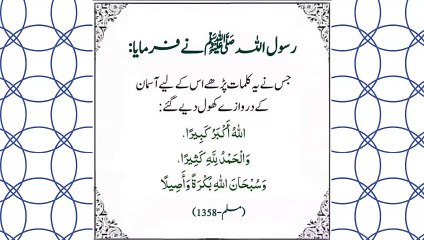 رسول اللہ ﷺ نے فرمایا:
جس نے یہ کلمات پڑھے اس کے لیے آسمان
کے دروازے کھول دیے گئے:
اللهُ أَكْبَرُ كَبِيرًا،
وَالْحَمْدُ لِلَّهِ كَثِيرًا،
وَسُبْحَانَ اللهِ بُكْرَةً وَأَصِيلًا
(مسلم-1358)